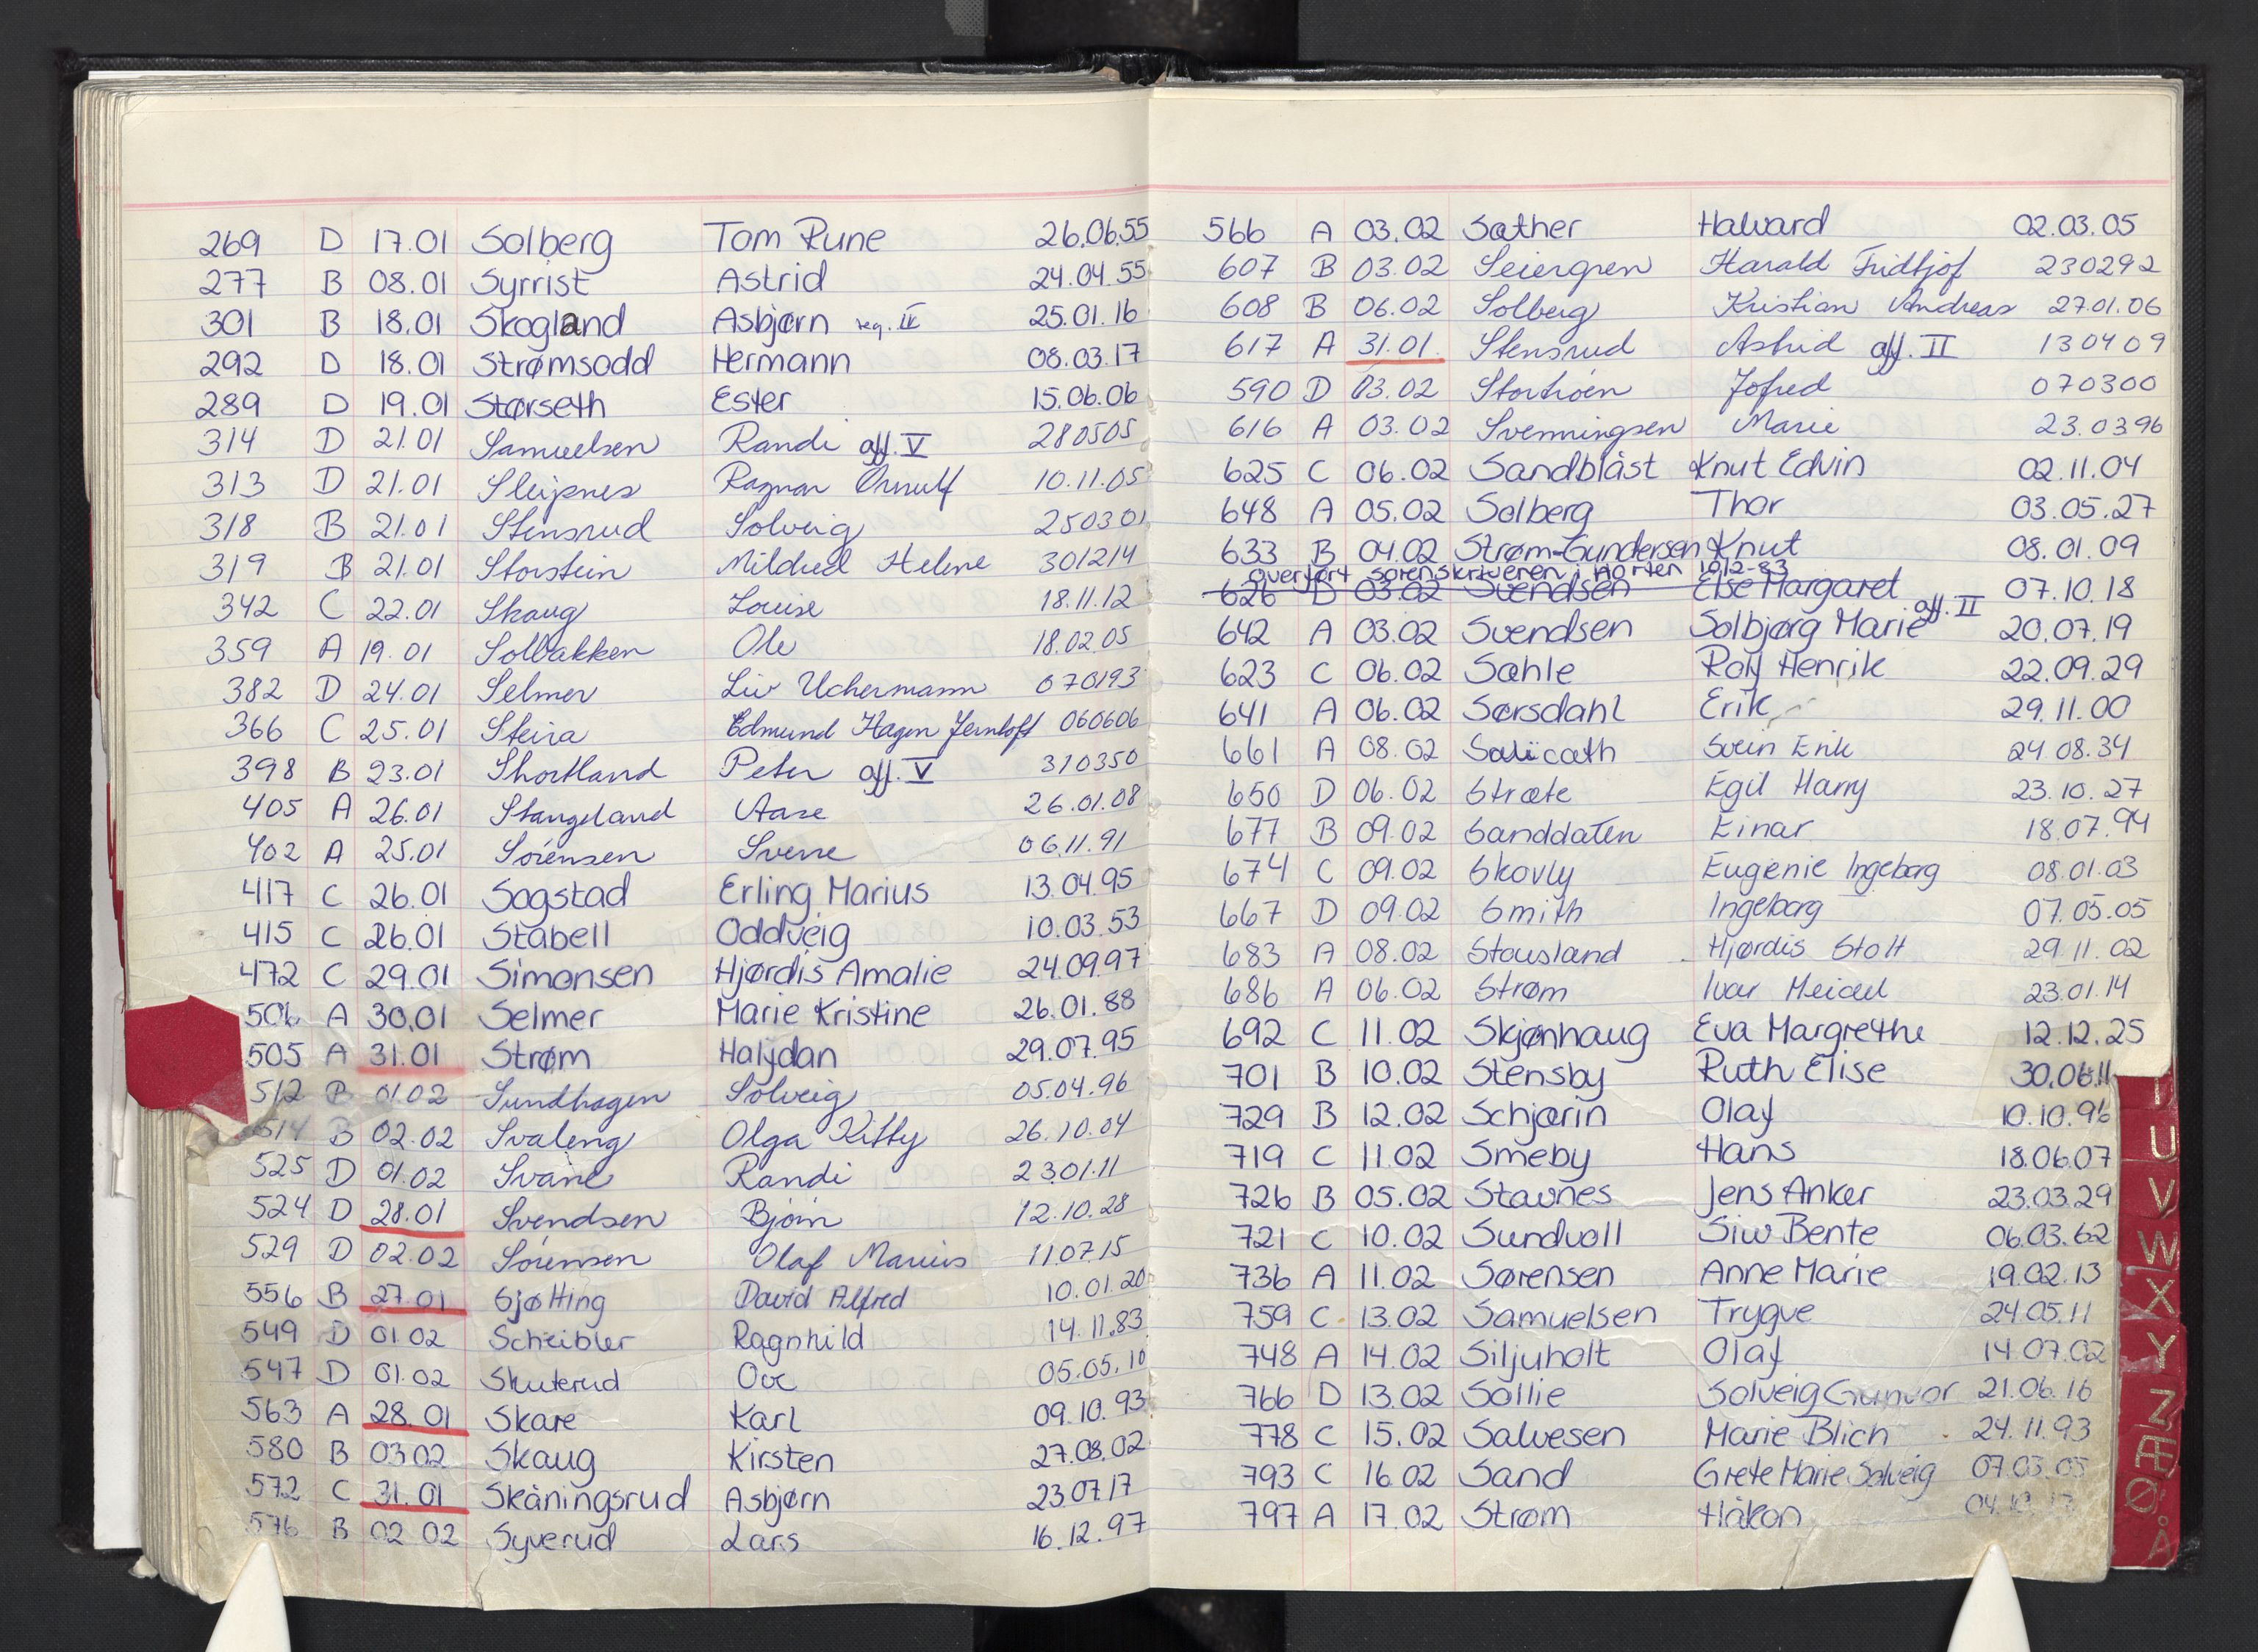 269 D 17.01 Solberg Tom Rune 26.06.55
277 B 08.01 Syrrist Astrid 24.04.55
301 B 18.01 Skogland Asbjørn reg. IV 25.01.16
292 D 18.01 Strømsodd Hermann 08.03.17
289 D 19.01 Størseth Ester 15.06.06
314 D 21.01 Samuelsen Randi aff. V 280505
313 D 21.01 Sleipnes Ragnar Ørnulf 10.11.05
318 B 21.01 Stensrud Solveig 250301
319 B 21.01 Storstein Mildred Helene 301214
342 C 22.01 Skaug Louise 18.11.12
359 A 19.01 Solbakken Ole 18.02.05
382 D 24.01 Selmer Liv Uchermann 070193
366 C 25.01 Steira Edmund Hagen Jernloft 060606
398 B 23.01 Shortland Peter aff. V 310350
405 A 26.01 Stangeland Aase 26.01.08
402 A 25.01 Sørensen Sverre 06.11.91
417 C 26.01 Sogstad Erling Marius 13.04.95
415 C 26.01 Stabell Oddveig 10.03.53
472 C 29.01 Simonsen Hjørdis Amalie 24.09.97
506 A 30.01 Selmer Marie Kristine 26.01.88
505 A 31.01 Strøm Halfdan 29.07.95
512 B 01.02 Sundhagen Solveig 05.04.96
514 B 02.02 Svaleng Olga Kitty 26.10.04
525 D 01.02 Svane Randi 23.01.11
524 D 28.01 Svendsen Bjørn 12.10.28
529 D 02.02 Sørensen Olaf Marius 11.07.15
556 B 27.01 Sjøtting David Alfred 10.01.20
549 D 01.02 Scheibler Ragnhild 14.11.83
547 D 01.02 Skuterud Ove 05.05.10
563 A 28.01 Skare Karl 09.10.93
580 B 03.02 Skaug Kirsten 27.08.02
572 C 31.01 Skåningsrud Asbjørn 23.07.17
576 B 02.02 Syverud Lars 16.12.97
566 A 03.02 Sæther Halvard 02.03.05
607 B 03.02 Seiergren Harald Fridtjof 230292
608 B 06.02 Solberg Kristian Andreas 27.01.06
617 A 31.01. Stensrud Astrid aff. II 130409
590 D 03.02 Storhoën Jofred 070300
616 A 03.02 Svenningsen Marie 23.0396
625 C 06.02 Sandblåst Knut Edvin 02.11.04
648 A 05.02 Solberg Thor 03.05.27
633 B 04.02 Strøm-Gundersen Knut 08.01.09
overført sorenskriveren i Horten 10/12-83
626 D 03.02 Svendsen Else Margaret 07.10.18
642 A 03.02 Svendsen Solbjørg Marie aff. II 20.07.19
623 C 06.02 Sæhle Rolf Henrik 22.09.29
641 A 06.02 Sørsdahl Erik 29.11.00
661 A 08.02 Salicath Svein Erik 24.08.34
650 D 06.02 Stræte Egil Harry 23.10.27
677 B 09.02 Sanddaten Einar 18.07.94
674 C 09.02 Skovly Eugenie Ingeborg 08.01.03
667 D 09.02 Smith Ingeborg 07.05.05
683 A 08.02 Stousland Hjørdis Stolt 29.11.02
686 A 06.02 Strøm Ivar Meidel 23.01.14
692 C 11.02 Skjønhaug Eva Margrethe 12.12.25
701 B 10.02 Stensby Ruth Elise 30.06.11
729 B 12.02 Schjærin Olaf 10.10.96
719 C 11.02 Smeby Hans 18.06.07
726 B 05.02 Stavnes Jens Anker 23.03.29
721 C 10.02 Sundvoll Siw Bente 06.03.62
736 A 11.02 Sørensen Anne Marie 19.02.13
759 C 13.02 Samuelsen Trygve 24.05.11
748 A 14.02 Siljuholt Olaf 14.07.02
766 D 13.02 Sollie Solveig Gunvor 21.06.16
778 C 15.02 Salvesen Marie Blich 24.11.93
793 C 16.02 Sand Grete Marie Solveig 07.03.05
797 A 17.02 Strøm Håkon
U
V
W
X
Y
Z
Æ
Ø
Å